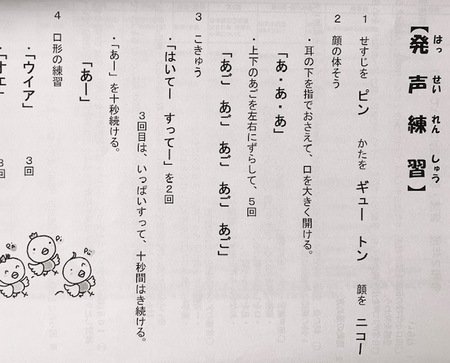 はっ せい れん しゅう
【発声練習】
1 せすじを ピン かたを ギュー トン 顔を ニコー
2 顔の体そう
・耳の下を指でおさえて、口を大きく開ける。
「あ・あ・あ」
・上下のあごを左右にずらして、5回
「あご あご あご あご あご」
3 こきゅう
・「はいてー すってー」を2回
3回目は、いっぱいすって、十秒間はき続ける。
・「あー」を十秒続ける。
「あー」
4 口形の練習
・「ウイア」 3回
・「オエ」